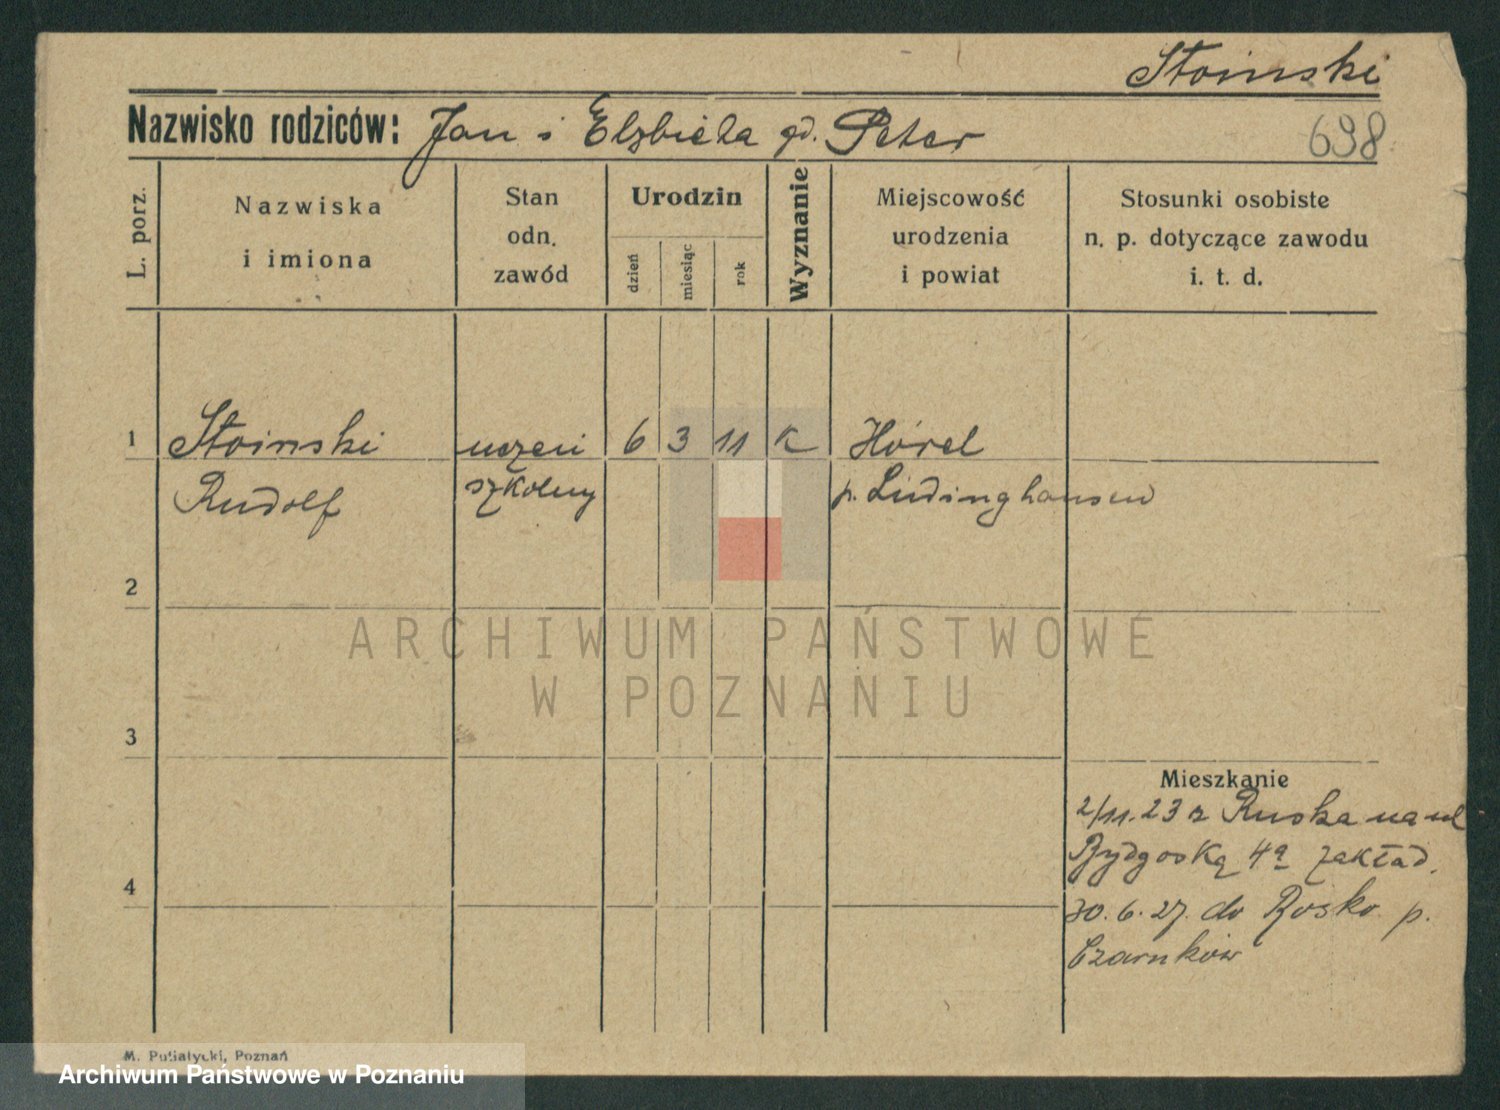 Stoinski
Nazwisko rodziców: Jan i Elzbieta gd. Peter
698
L. porz.
Nazwiska
i imiona
Stan
odn.
zawód
Urodzin
dzień
miesiąc
rok
Wyznanie
Miejscowość
urodzenia
i powiat
Stosunki osobiste
n. p. dotyczące zawodu
i. t. d.
1
Stoinski uczeń 6 3 11 K Hörel
Rudolf szkolny p. Lüdinghausen
2
ARCHIWUM PAŃSTWOWE
W POZNANIU
3
Mieszkanie
2/11.23 z Ruska na ul
Bydgoską 4a zakład.
4
30.6.27. do Rosko p.
Czarnków
M. Putiatycki, Poznań
Archiwum Państwowe w Poznaniu